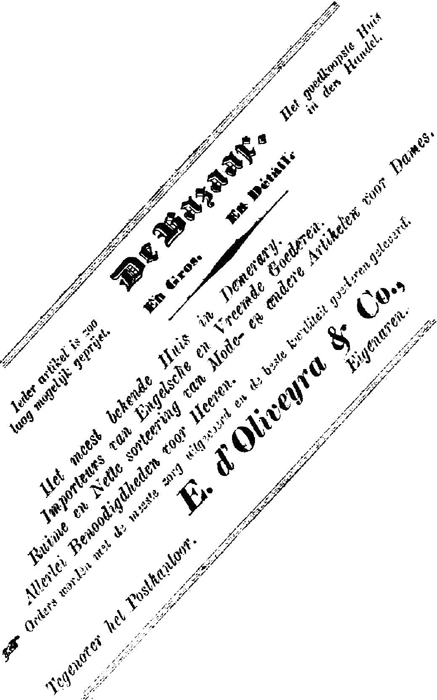 Ieder artikel is zoo
laag mogelijk geprijst.
De Bazaar.
En Gros. En Détail.
Het goedkoopste Huis
in den Handel.
Het meest bekende Huis in Demerary.
Importeurs van Engelsche en Vreemde Goederen.
Ruime en Nette sorteering van Mode- en andere Artikelen voor Dames.
Allerlei Benoodigdheden voor Heeren.
Orders worden met de meeste zorg uitgevoerd en de beste kwaliteit goederen geleverd.
E. d'Oliveyra & Co.,
Eigenaren.
Tegenover het Postkantoor.